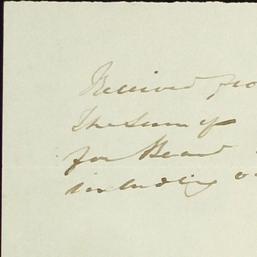 Received fro
The Sum of
for Board
including o